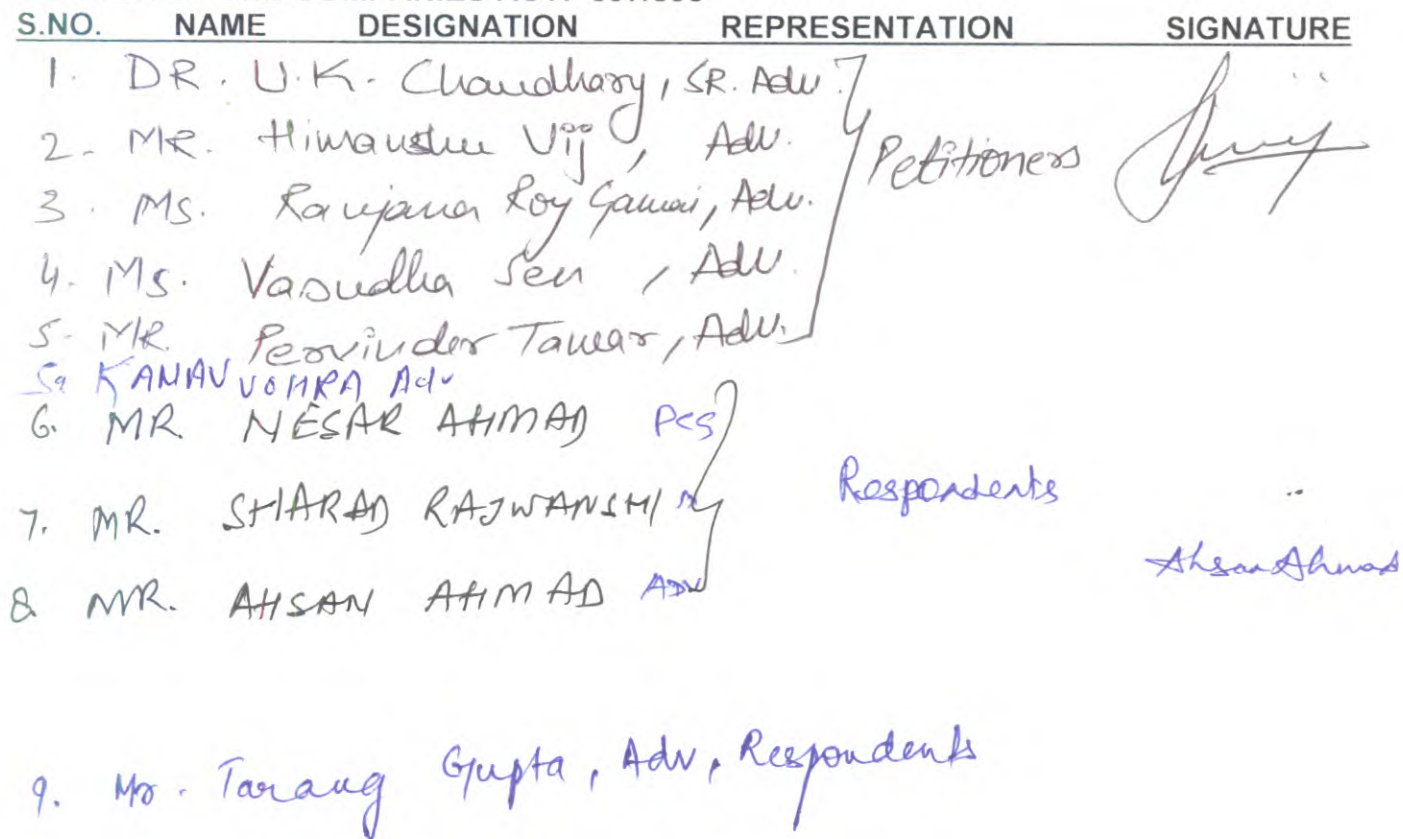 S.NO. NAME DESIGNATION REPRESENTATION SIGNATURE
1. DR. U.K. Chaudhary, SR. Adv.
2. MR. Himanshu Vij, Adv.
Petitioners
3. MS. Ranjana Roy Gawai, Adv.
4. Ms. Vasudha Sen, Adv.
5. MR. Pervinder Tanwar, Adv.
5a KANAV VOHRA Adv
6. MR. NESAR AHMAD PCS
7. MR. SHARAD RAJWANSHI
Respondents
8 MR. AHSAN AHMAD ADV
Ahsan Ahmad
9. Mr. Tarang Gupta, Adv, Respondents